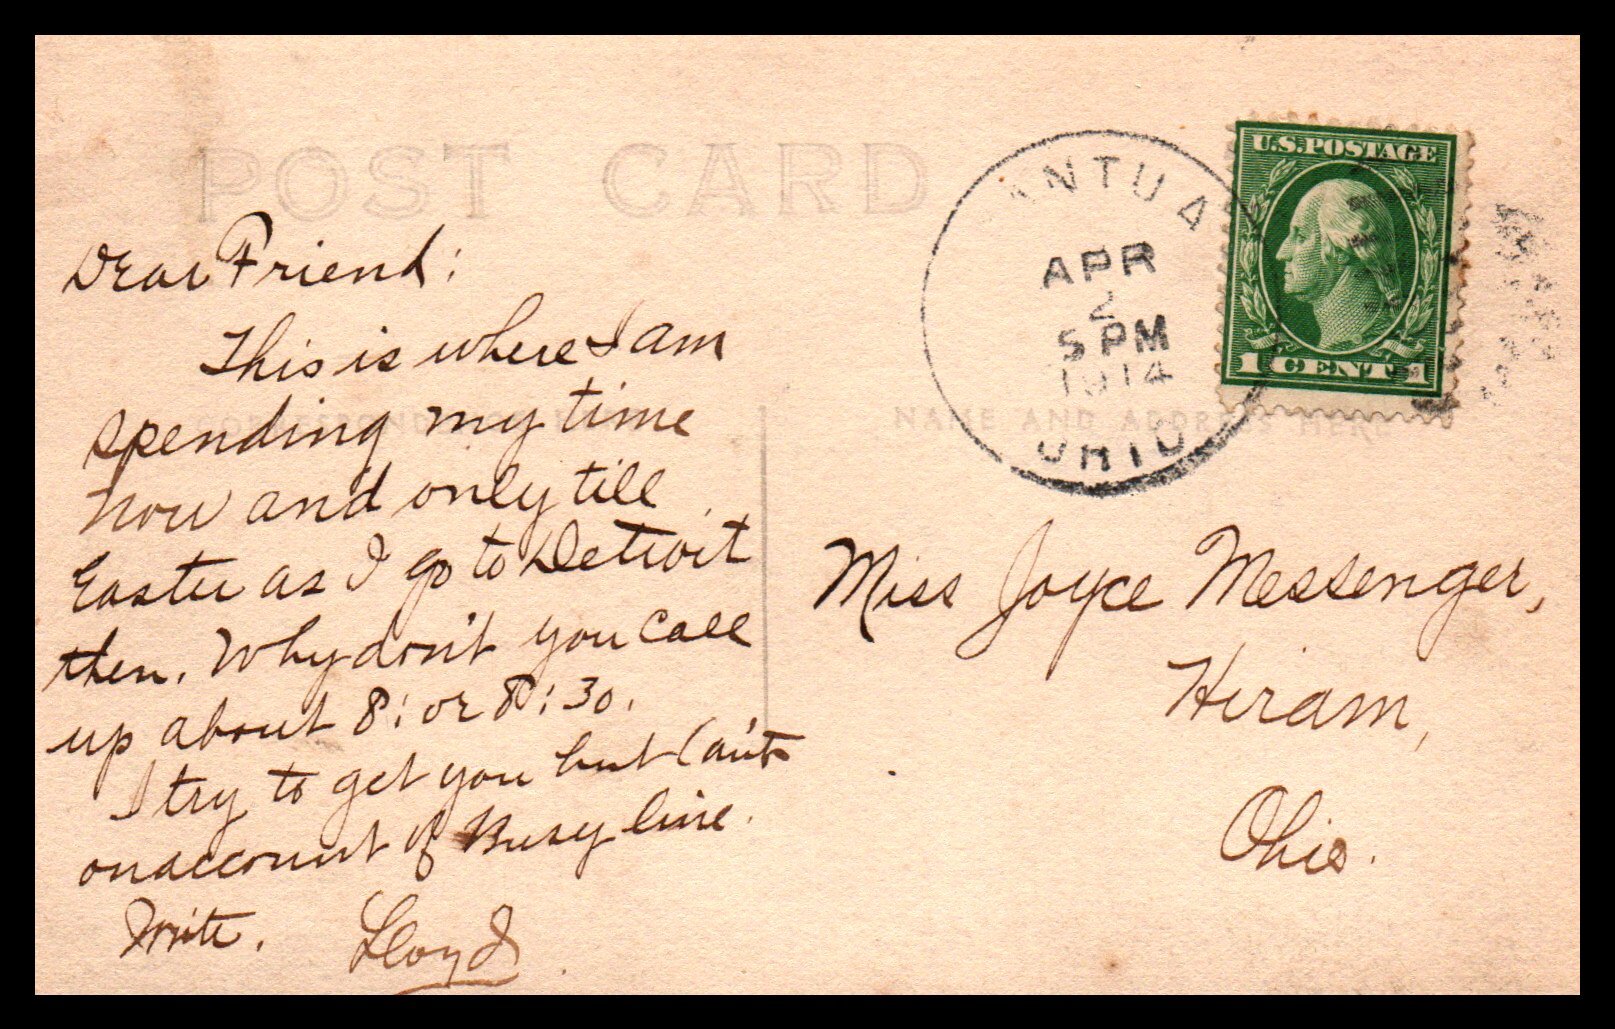 POST CARD
Dear Friend:
This is where I am
spending my time
now and only till
Easter as I go to Detroit
then. Why don't you call
up about 8: or 8:30.
I try to get you but Can't
on account of Busy line.
Write. Lloyd.
ANTUA
APR
2
5 PM
1914
OHIO
U.S. POSTAGE
1 CENT 1
NAME AND ADDRESS HERE
Miss Joyce Messenger,
Hiram,
Ohio.